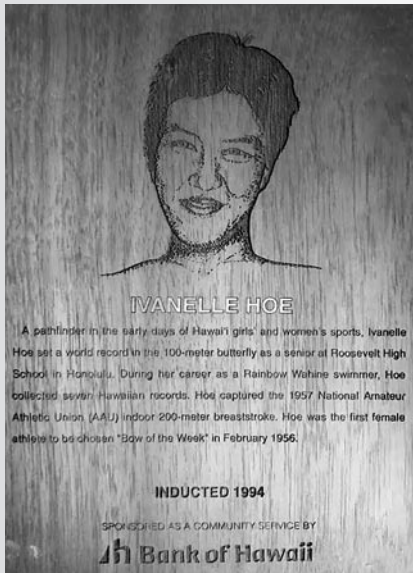 IVANELLE HOE
A pathfinder in the early days of Hawai'i girls' and women's sports, Ivanelle
Hoe set a world record in the 100-meter butterfly as a senior at Roosevelt High
School in Honolulu. During her career as a Rainbow Wahine swimmer, Hoe
collected seven Hawaiian records. Hoe captured the 1957 National Amateur
Athletic Union (AAU) indoor 200-meter breaststroke. Hoe was the first female
athlete to be chosen "Bow of the Week" in February 1956.
INDUCTED 1994
SPONSORED AS A COMMUNITY SERVICE BY
Bank of Hawaii